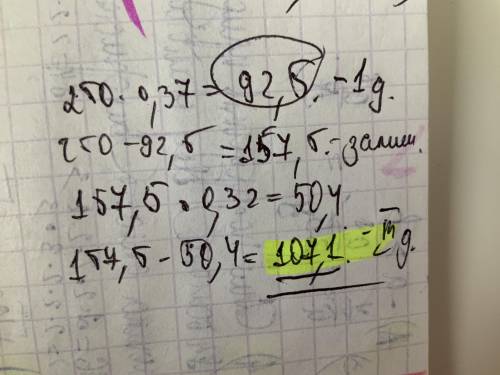 250 · 0,37 = 92,5. - 1 д.
250 - 92,5 = 157,5. - залиш.
157,5 · 0,32 = 50,4
157,5 - 50,4 = 107,1. - III д.